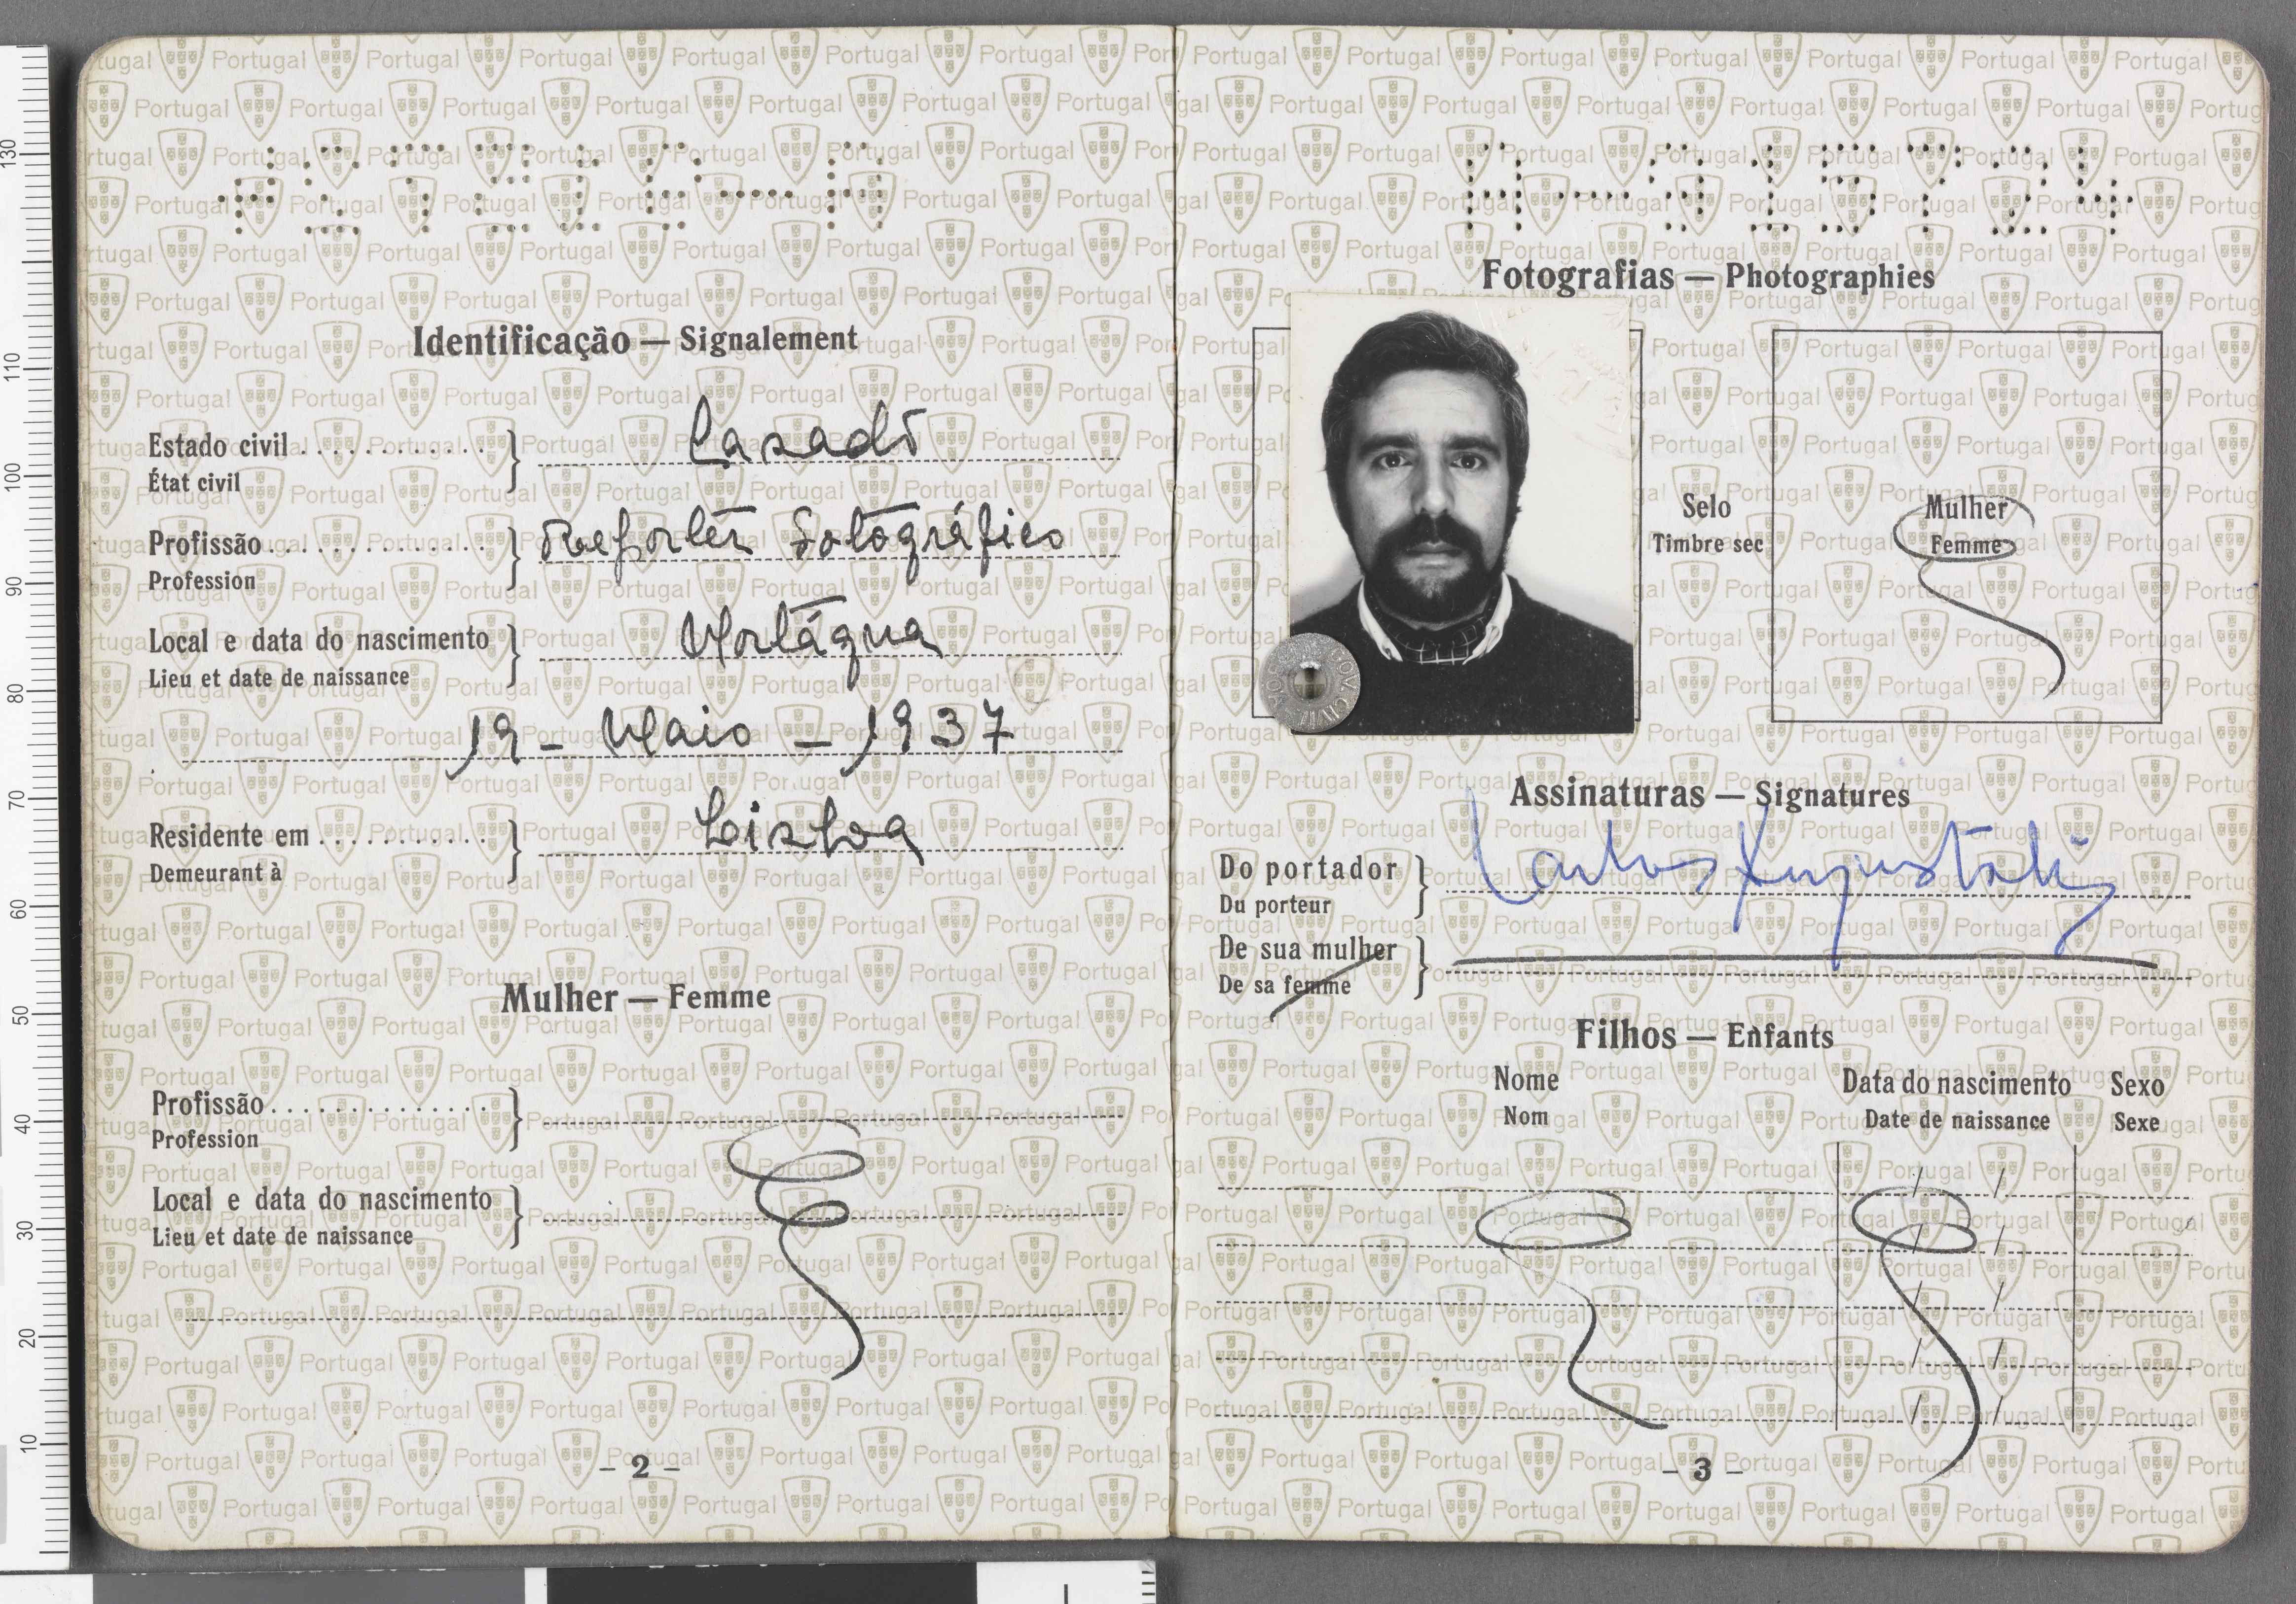 Portugal
Identificação — Signalement
Estado civil ............ } Casado
État civil
Profissão .............. } Repórter fotográfico
Profession
Local e data do nascimento } Mortágua
Lieu et date de naissance
19 - Maio - 1937
Residente em ........... } Lisboa
Demeurant à
Mulher — Femme
Profissão .............. }
Profession
Local e data do nascimento }
Lieu et date de naissance
- 2 -
Fotografias — Photographies
Selo
Timbre sec
Mulher
Femme
GOV. CIVIL
Assinaturas — Signatures
Do portador } Carlos Augusto
Du porteur
De sua mulher }
De sa femme
Filhos — Enfants
Nome Data do nascimento Sexo
Nom Date de naissance Sexe
- 3 -
130
110
100
90
80
70
60
50
40
30
20
10